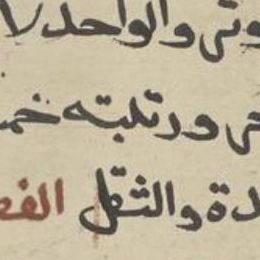 وتى والواحد لا
حى ورتلبته خمـ
ـدة والثقل الفـ